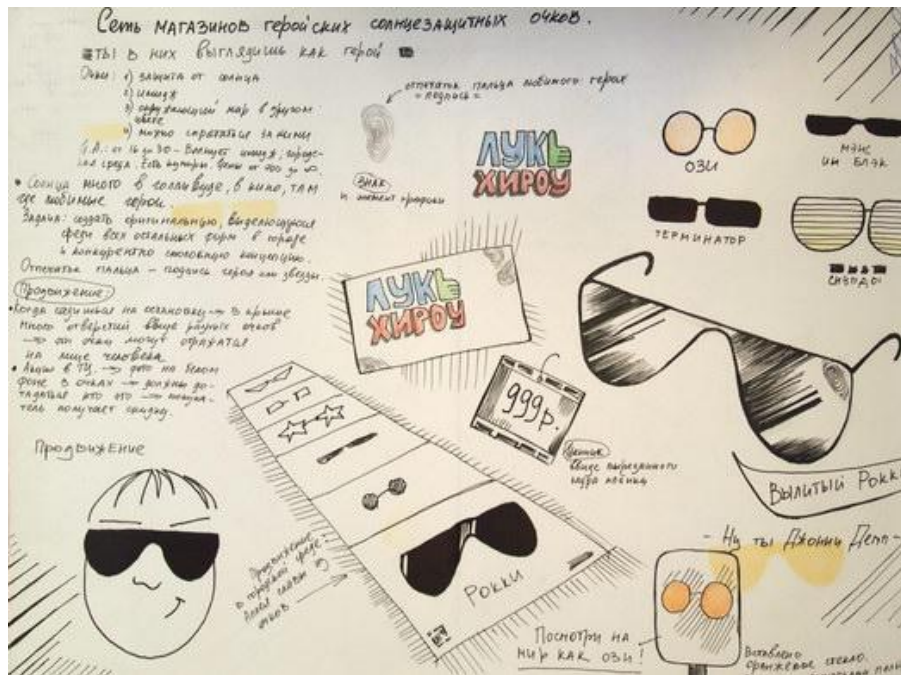 Сеть магазинов геройских солнцезащитных очков.
ТЫ В НИХ ВЫГЛЯДИШЬ КАК ГЕРОЙ
Очки: 1) защита от солнца
2) имидж
3) окружающий мир в другом
цвете
4) можно спрятаться за ними
Ц.А.: от 16 до 30 -
ская среда. Есть Цены от 700 до ∞.
• Солнца много в голливуде, в кино, там
где любимые герои.
Задача: создать оригинальную, выделяющуюся
среди всех остальных фирм в городе
и конкурентно способную концепцию.
Отпечаток пальца - подпись героя или звезды.
Продвижение:
• Когда садишься на остановку → в крыше
много отверстий ввиде разных очков
→ эти очки могут отражатся
на лице человека.
• Акция в ТЦ → фото на белом
фоне в очках → должны до-
гадаться кто это →
тель получает скидку.
Продвижение
отпечаток пальца любимого героя
= подпись =
ЗНАК
и элемент графики
ЛУКЬ
ХИРОУ
ЛУКЬ
ХИРОУ
ОЗИ
МЭН
ИН БЛЭК
ТЕРМИНАТОР
999р.
Ценник
ввиде вырезанного
кадра плёнки
Вылитый Рокки
Продвижение
в городской среде:
Аллея славы
очков
РОККИ
- Ну ты Джонни Депп -
Посмотри на
мир как ози!
Вставлено
оранжевое стекло.